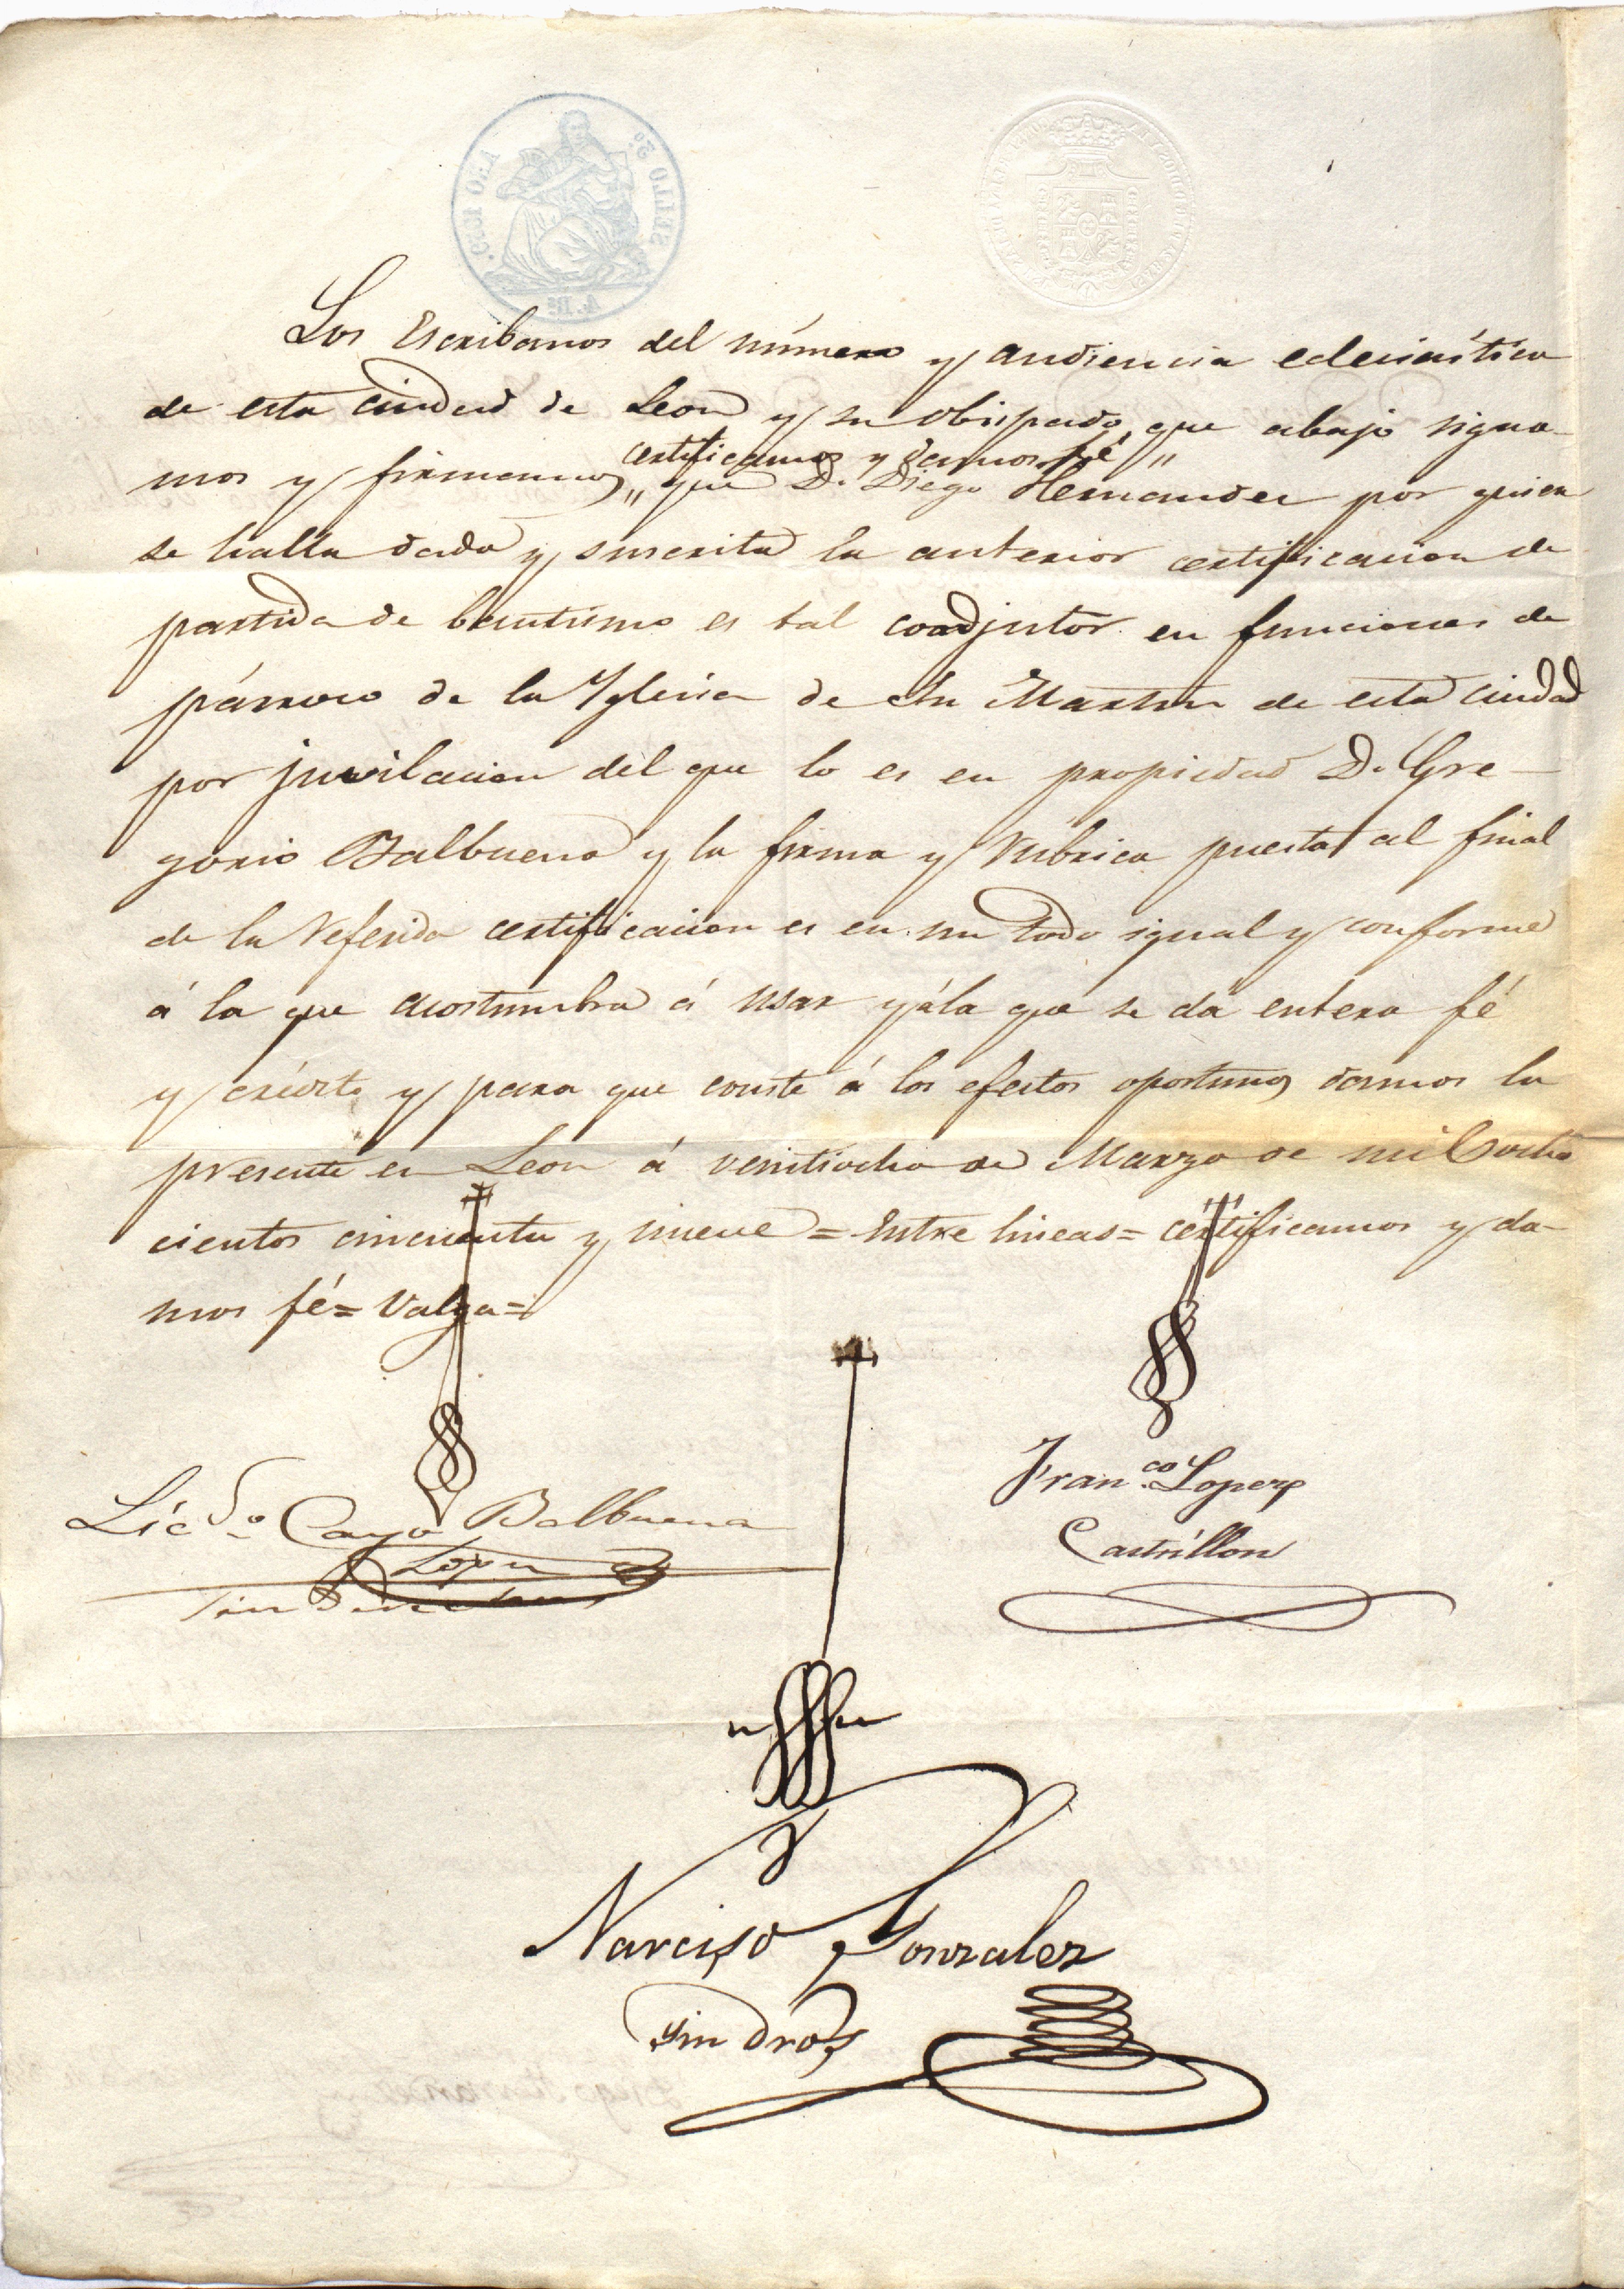 Los Escribanos del número y audiencia eclesiástica
de esta ciudad de Leon y su obispado, que abajo signa-
certificamos y damos fé "
mos y firmamos " que D. Diego Hernandez por quien
se halla dada y suscrita la anterior certificacion de
partida de bautismo es tal coadjutor en funciones de
párroco de la Yglesia de Sn Martin de esta ciudad
por juvilacion del que lo es en propiedad D. Gre-
gorio Balbuena y la firma y rubrica puesta al final
de la referida certificacion es en un todo igual y conforme
á la que acostumbra á usar y á la que se da entera fé
y crédito y para que conste á los efectos oportunos damos la
presente en Leon á veintiocho de Marzo de mil ocho
cientos cincuenta y nueve = Entre lineas = certificamos y da-
mos fé = Valga =
Licdo. Cayo Balbuena
Lopez
Sin Derechos
Franco. Lopez
Castrillon
Narciso Gonzalez
Sin dros